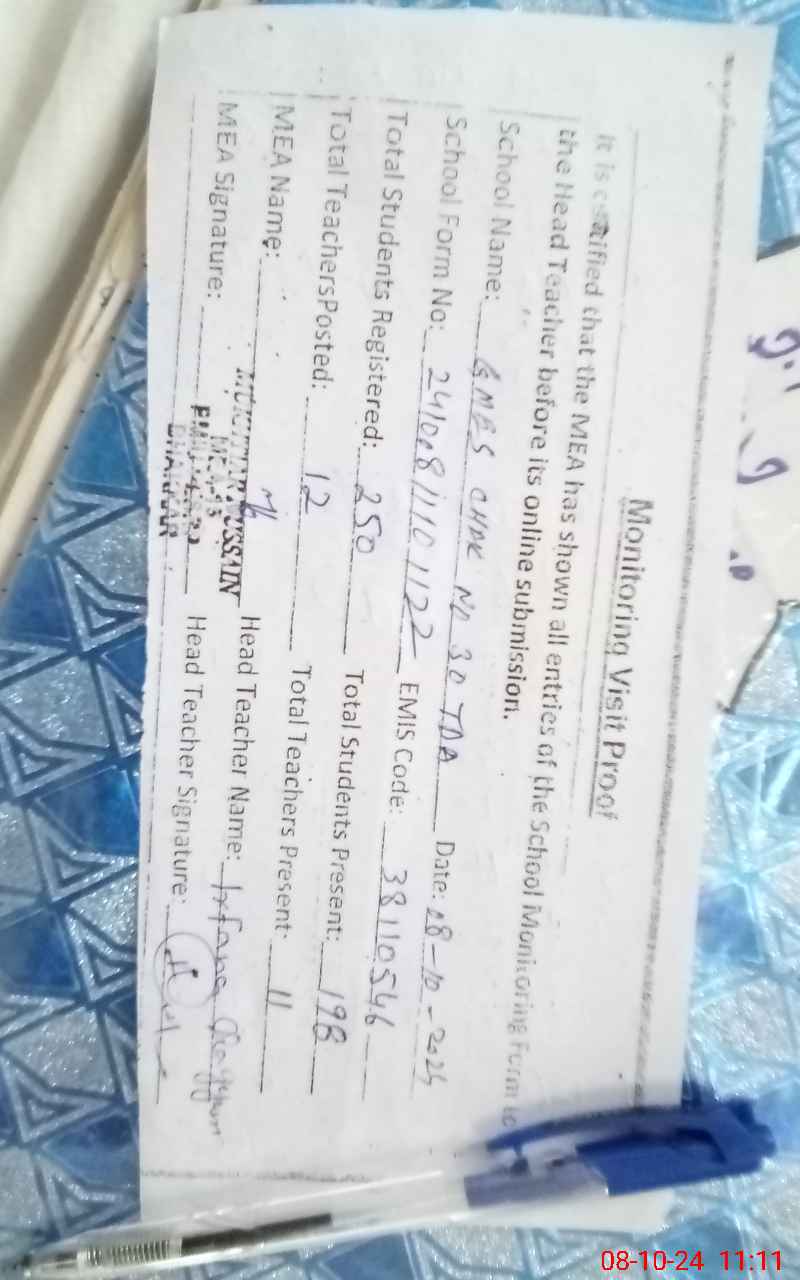 Monitoring Visit Proof
It is certified that the MEA has shown all entries of the School Monitoring Form to
the Head Teacher before its online submission.
School Name: GMES CHAK NO 30 TDA Date: 08-10-2024
School Form No: 241008111101122 EMIS Code: 38110546
Total Students Registered: 250 Total Students Present: 198
Total TeachersPosted: 12 Total Teachers Present: 11
MEA Name: HUSSAIN Head Teacher Name:
MEA Signature: Head Teacher Signature:
BHAKKAR
08-10-24 11:11